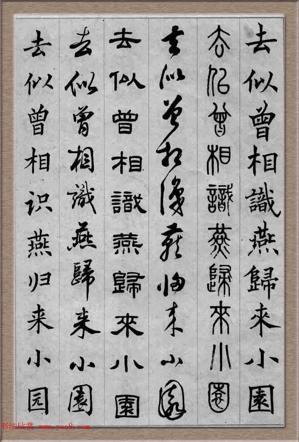 去似曾相識燕歸來小園
去似曾相識燕歸來小園
去似曾相識燕歸來小園
去似曾相識燕歸來小園
去似曾相識燕歸来小園
去似曾相识燕归来小园